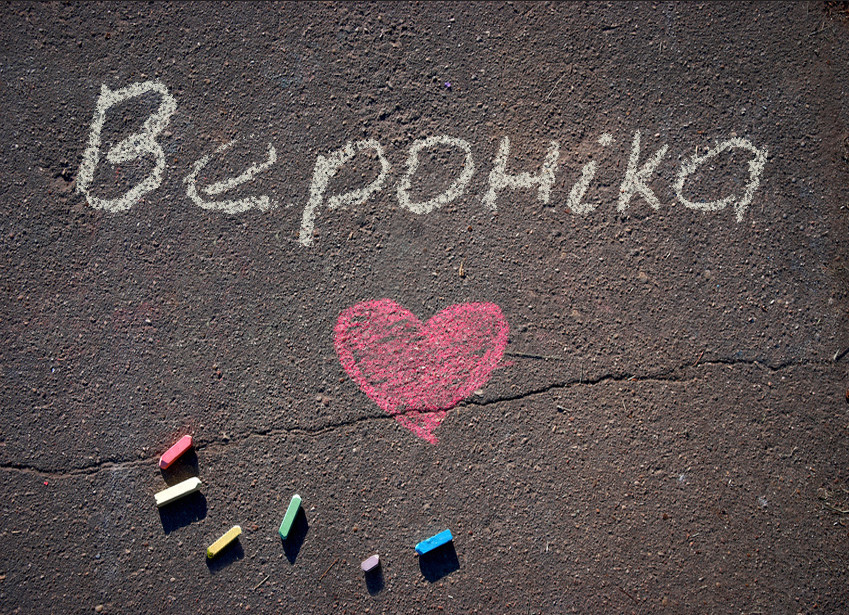 Вероніка